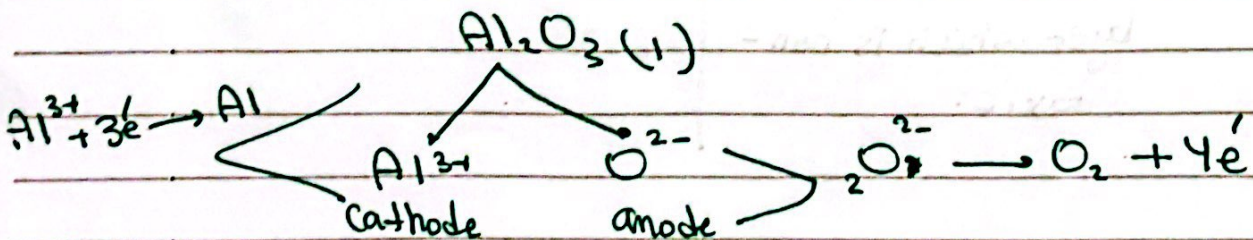 Al₂O₃ (l)
Al³⁺ + 3é → Al
Al³⁺ O²⁻ ₂O²⁻ → O₂ + 4é
cathode anode